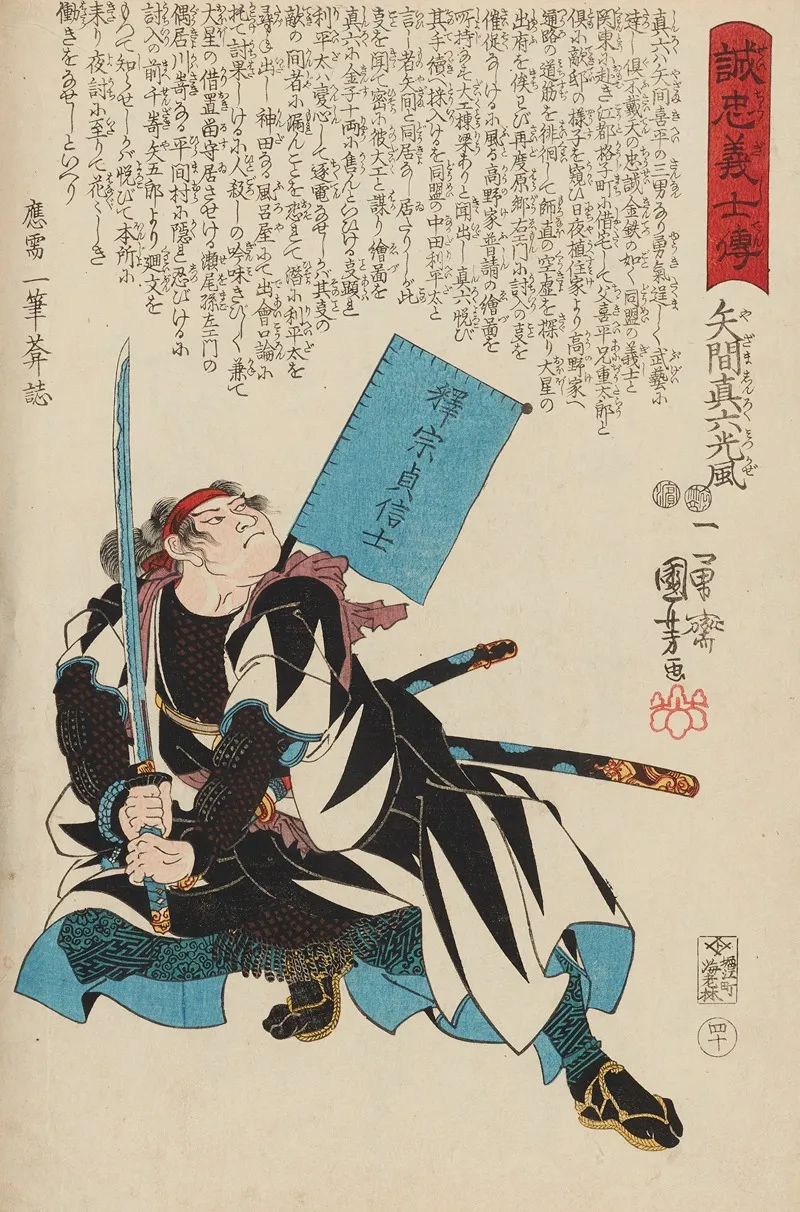 誠忠義士傳
矢間真六光風
やざましんろくみつかぜ
真六ハ矢間喜平の三男なり勇氣逞しく武藝に
達し倶不戴天の忠誠金鉄の如く同盟の義士と
関東に赴き江都格子町に借宅して父喜平兄重太郎と
倶に敵邸の様子を窺ひ日夜植住家より高野家へ
通路の道筋を徘徊して師直の空虚を探り大星の
出府を俟わび再度原郷右エ門に討入の支を
催促なしけるに高野家普請の繪圖を
所持なす大工棟梁ありと聞出し真六悦び
其手續へ採入けるを同盟の中田利平太と
言し者矢間と同居なし居たりしが此
支を聞て密に彼大工と謀り繪圖を
真六に金子十両に售んといひける支顕れ
利平太ハ変心して逐電なせしが其支の
敵の間者に漏んことを恐れて潜に利平太を
尋ね出し神田なる風呂屋にて出會口論に
托て討果しけるに人殺しの吟味きびしく兼て
大星の借置留守居させける瀬尾孫左エ門の
偶居川嵜なる平間村に隠れ忍びけるに
討入の前千嵜矢五郎より廻文を
もつて知らせしかバ悦びて本所に
来り夜討に至りて花々しき
働きをなせしといへり
應需 一筆葊誌
釋宗貞信士
濱
一勇齋
國芳画
堀江町
海老林
四十